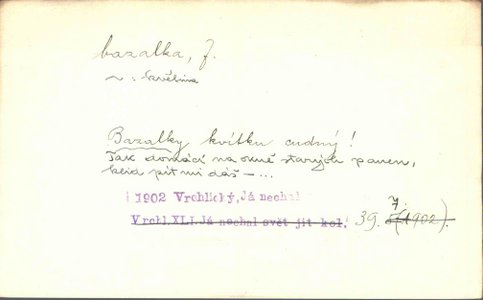 bazalka, f.
~ : květina
Bazalky kvítku cudný!
Tak domácí na okně starých panen,
klid pít mi dáš – ...
1902 Vrchlický, Já nechal
Vrchl.XLI.Já nechal svět jít kol. 39. 7. (1902).